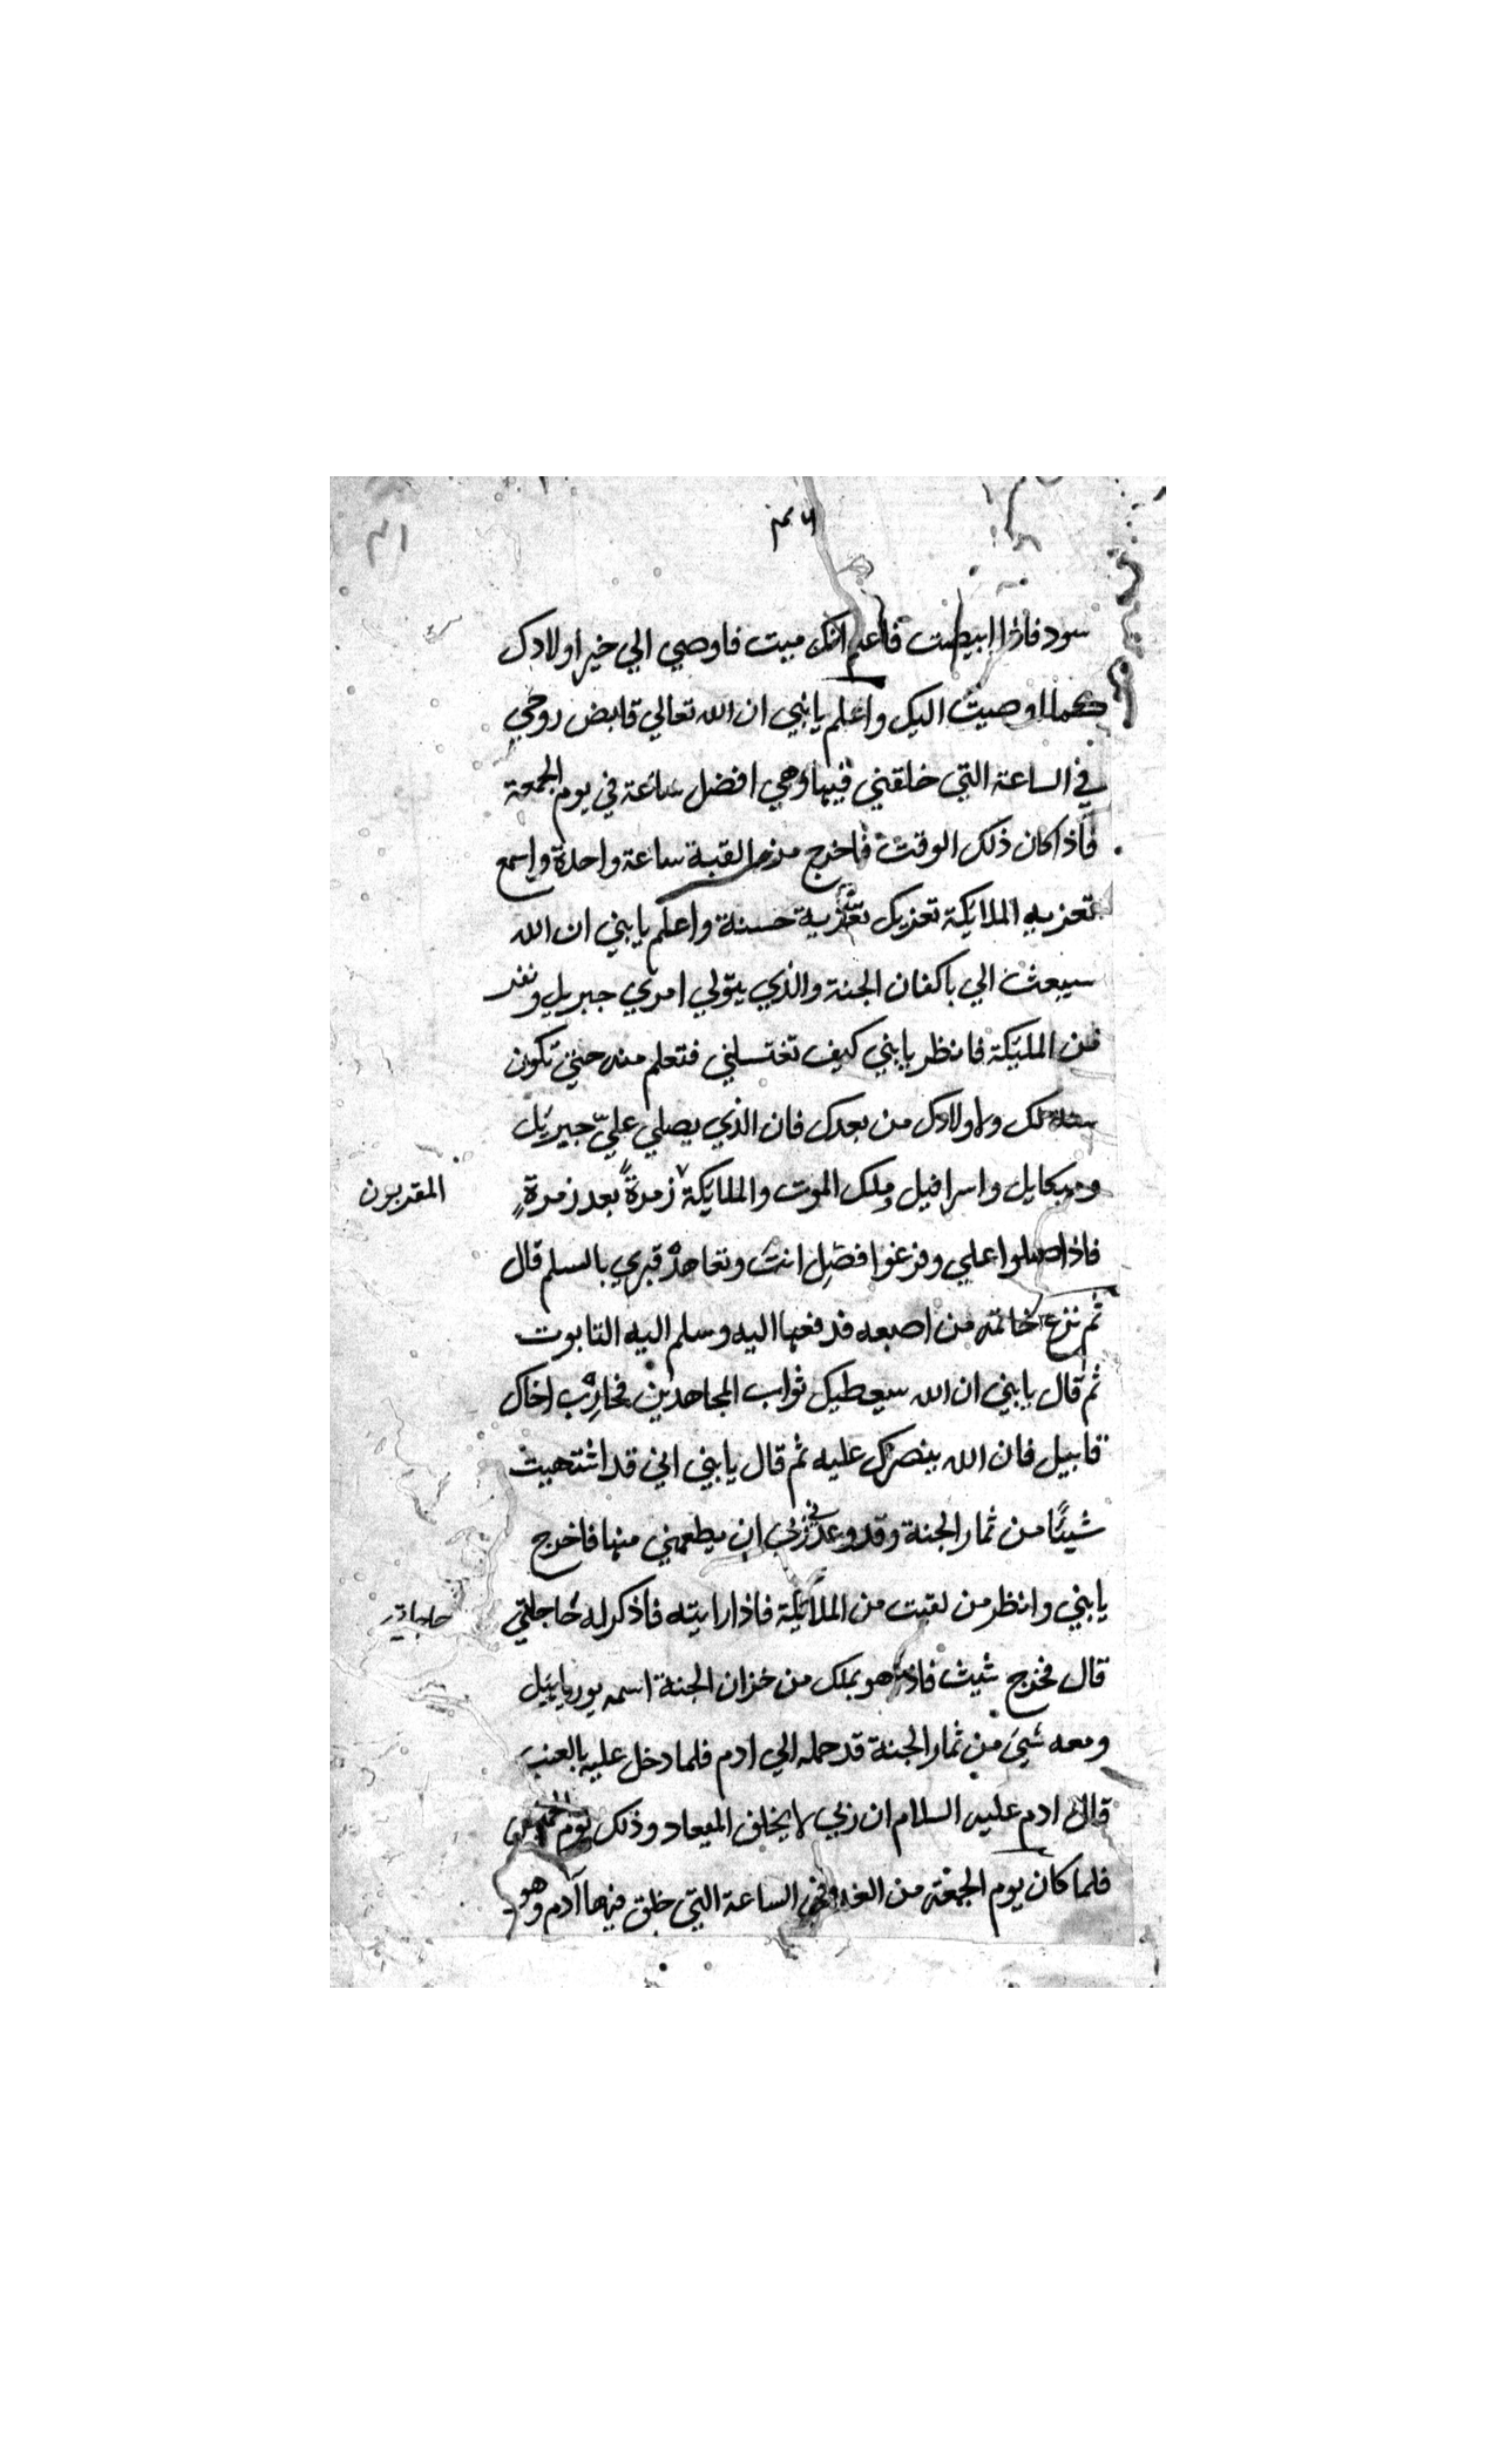 سود فاذا ابيضت فاعلم انك ميت فاوصي الي خير اولادك
كما اوصيت اليك واعلم يابني ان الله تعالي قابض روحي
في الساعة التي خلقني فيها وهي افضل ساعة في يوم الجمعة
فاذا كان ذلك الوقت فاخرج من القبة ساعة واحدة واسمع
تعزيه الملايكة تعزيك تعزية حسنة واعلم يابني ان الله
سيبعث الي باكفان الجنة والذي يتولي امري جبريل ونفر
من المليكة فانظر يابني كيف تغتسلني فتعلم منه حتي تكون
سنة لك ولاولادك من بعدك فان الذي يصلي عليّ جبريل
وميكايل واسرافيل وملك الموت والملايكة زمرةً بعد زمرةٍ
المقربون
فاذا صلوا علي وفرغوا فصَلِ انت وتعاهدْ قبري بالسلم قال
ثم نزع خاتمه من اصبعه فدفعها اليه وسلم اليه التابوت
ثم قال يابني ان الله سيعطيك ثواب المجاهدين فحارِبْ اخاك
قابيل فان الله ينصرك عليه ثم قال يابني اني قد اشتهيت
شيئًا من ثمار الجنة وقد وعدني ربي ان يطعمني منها فاخرج
يابني وانظر من لقيت من الملايكة فاذا رايته فاذكر له حاجتي
قال فخرج شيث فاذا هو بملك من خزان الجنة اسمه
ومعه شيء من ثمار الجنة قد حمله الي ادم فلما دخل عليه بالعنب
قال ادم عليه السلام ان ربي لا يخلف الميعاد وذلك يوم
فلما كان يوم الجمعة من الغد وفي الساعة التي خلق فيها آدم وهو